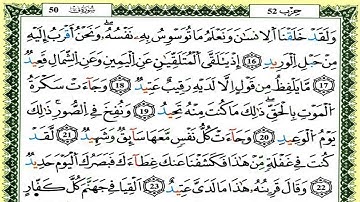 حزب 52 سورة ق 50
وَلَقَدْ خَلَقْنَا ٱلْإِنسَٰنَ وَنَعْلَمُ مَا تُوَسْوِسُ بِهِۦ نَفْسُهُۥ ۖ وَنَحْنُ أَقْرَبُ إِلَيْهِ
مِنْ حَبْلِ ٱلْوَرِيدِ 16 إِذْ يَتَلَقَّى ٱلْمُتَلَقِّيَٰنِ عَنِ ٱلْيَمِينِ وَعَنِ ٱلشِّمَالِ قَعِيدٌ
17 مَّا يَلْفِظُ مِن قَوْلٍ إِلَّا لَدَيْهِ رَقِيبٌ عَتِيدٌ 18 وَجَآءَتْ سَكْرَةُ
ٱلْمَوْتِ بِٱلْحَقِّ ۖ ذَٰلِكَ مَا كُنتَ مِنْهُ تَحِيدُ 19 وَنُفِخَ فِى ٱلصُّورِ ۚ ذَٰلِكَ
يَوْمُ ٱلْوَعِيدِ 20 وَجَآءَتْ كُلُّ نَفْسٍ مَّعَهَا سَآئِقٌ وَشَهِيدٌ 21 لَّقَدْ
كُنتَ فِى غَفْلَةٍ مِّنْ هَٰذَا فَكَشَفْنَا عَنكَ غِطَآءَكَ فَبَصَرُكَ ٱلْيَوْمَ حَدِيدٌ
22 وَقَالَ قَرِينُهُۥ هَٰذَا مَا لَدَىَّ عَتِيدٌ 23 أَلْقِيَا فِى جَهَنَّمَ كُلَّ كَفَّارٍ